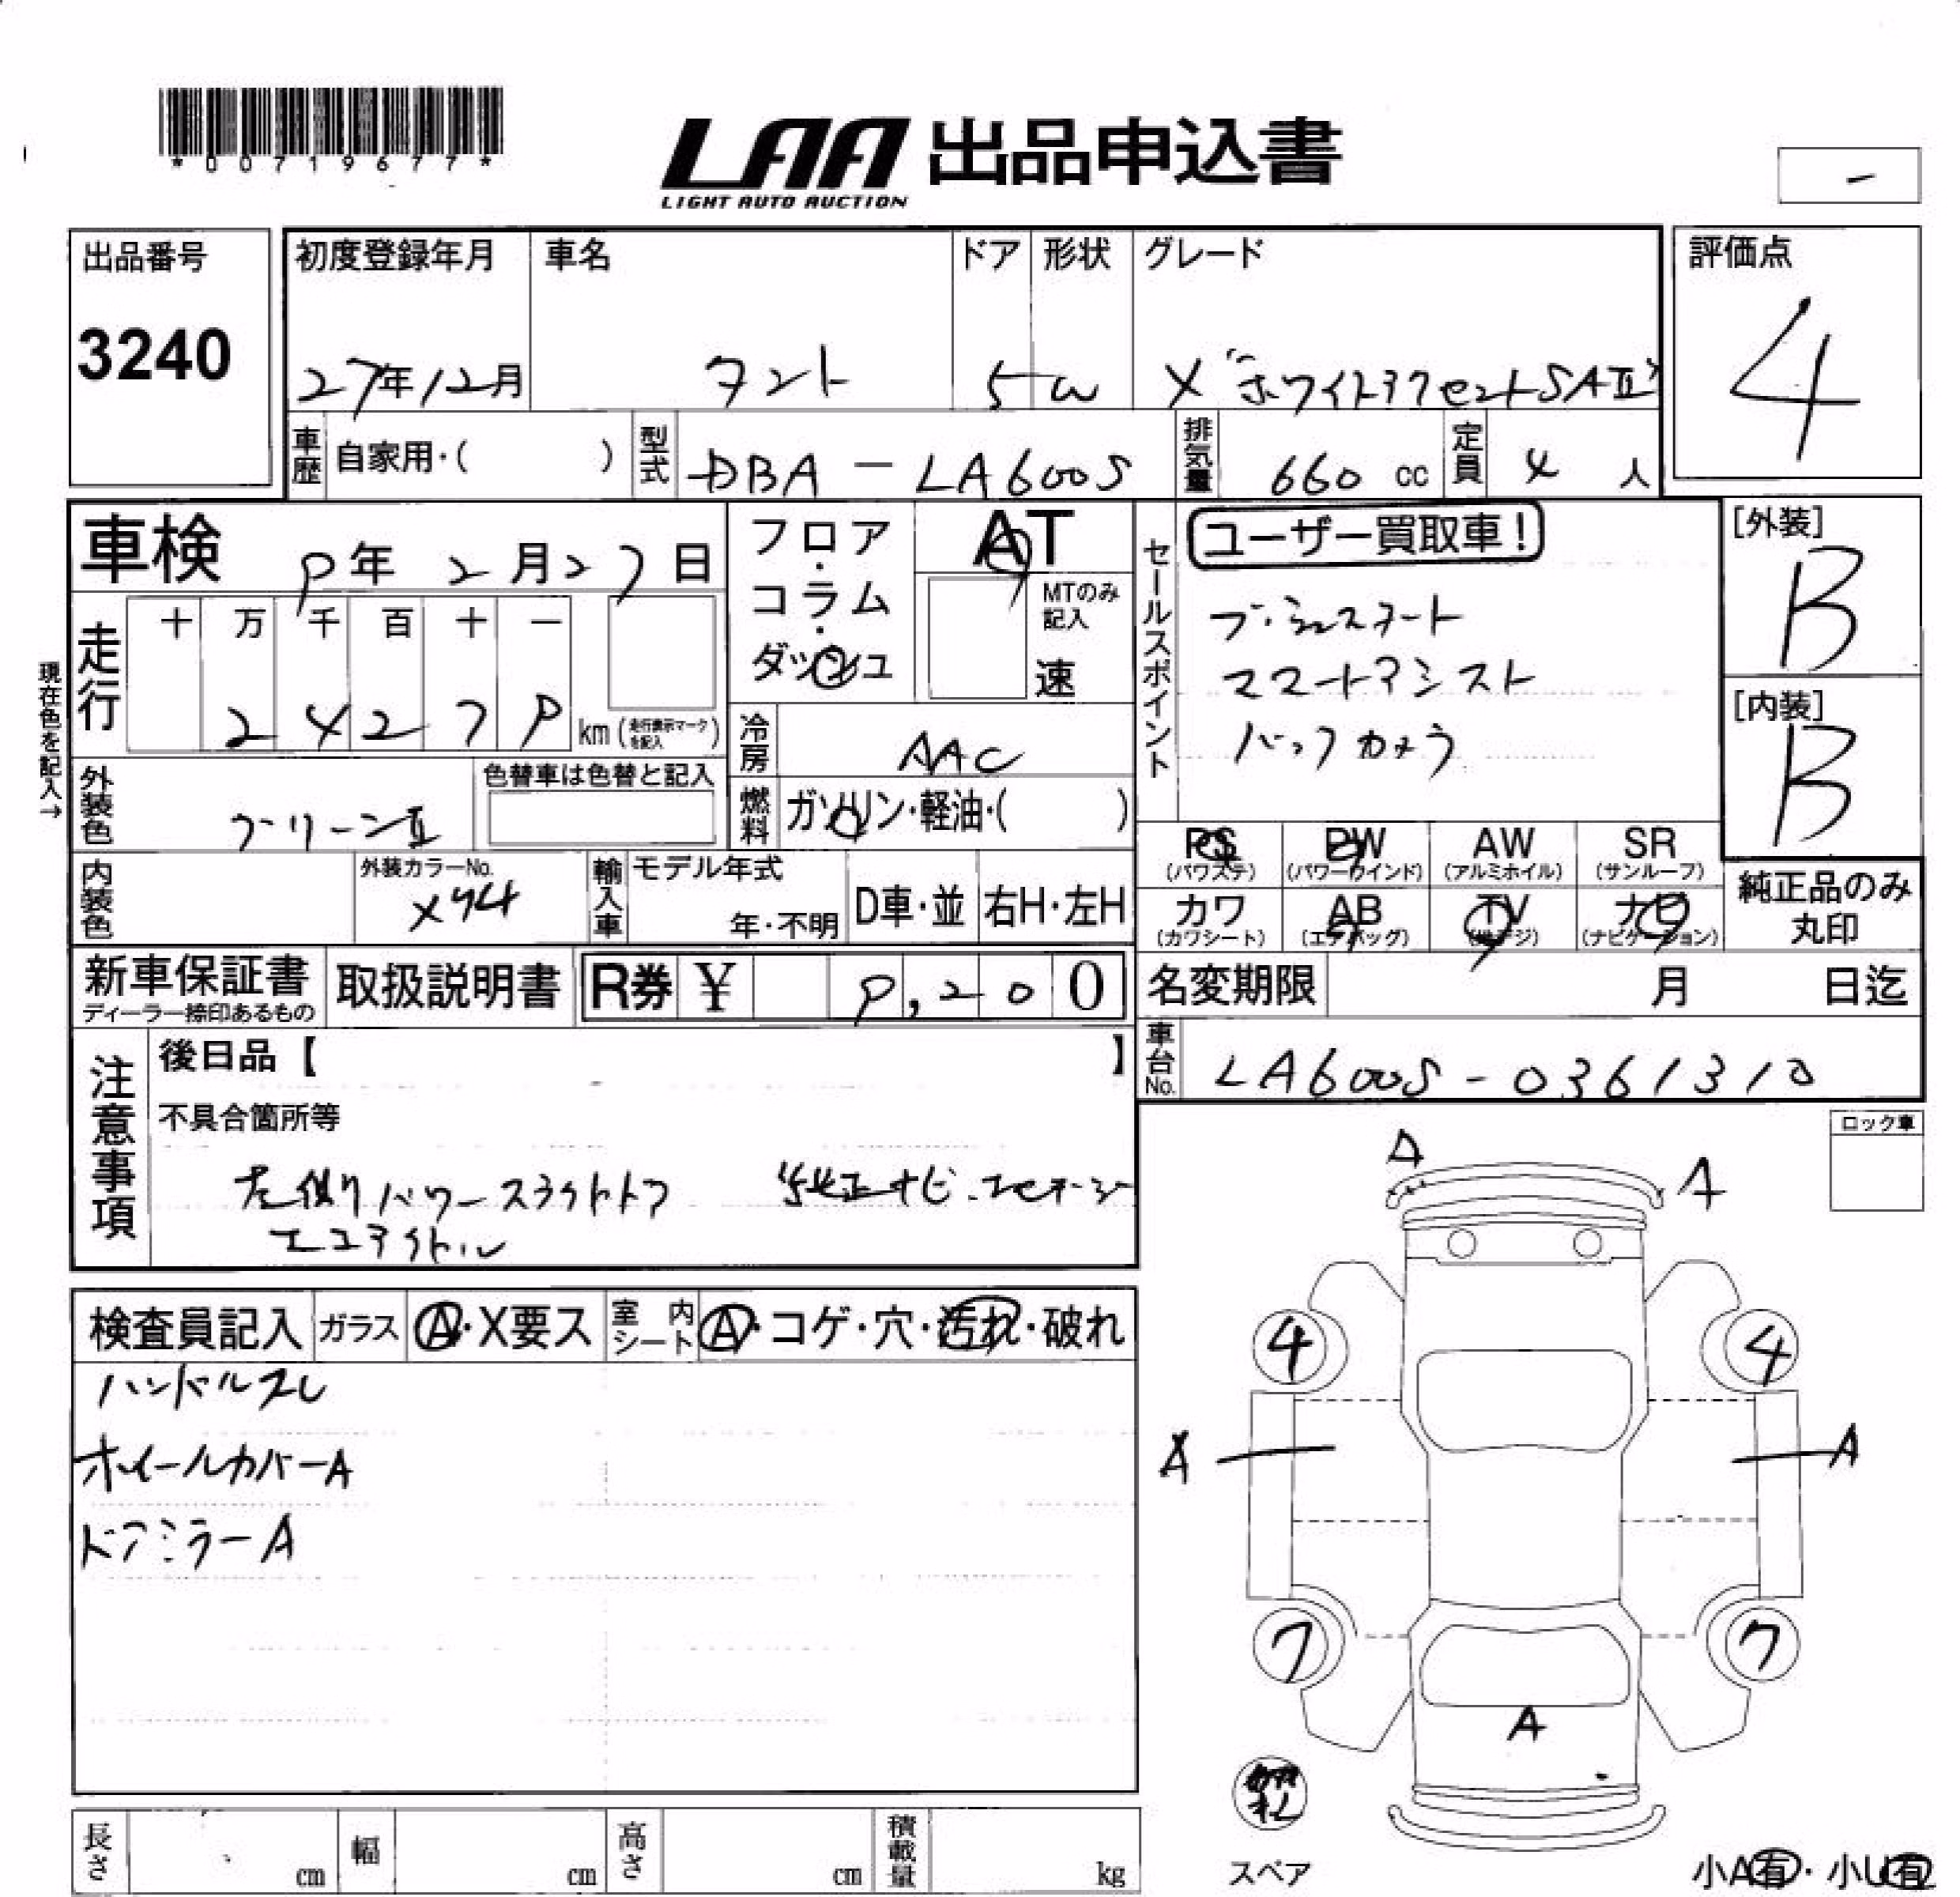 *00719677*
LAA 出品申込書
LIGHT AUTO AUCTION
-
出品番号
3240
初度登録年月 車名 ドア 形状 グレード
27年12月 タント 5 W X "ホワイトアクセントSAⅡ"
評価点
4
車歴 自家用・( ) 型式 DBA - LA600S 排気量 660 cc 定員 4 人
車検 9年 2月27日
フロア・コラム・ダッシュ
AT
MTのみ記入
速
セールスポイント
ユーザー買取車!
プッシュスタート
スマートアシスト
バックカメラ
[外装]
B
[内装]
B
現在色を記入→
走行 十 万 千 百 十 一
2 4 2 7 9 km (走行表示マークを記入)
冷房 AAC
外装色 グリーンⅡ
色替車は色替と記入
燃料 ガソリン・軽油・( )
PS (パワステ) PW (パワーウインド) AW (アルミホイル) SR (サンルーフ)
カワ (カワシート) AB (エアバッグ) TV (地デジ) ナビ (ナビゲーション)
純正品のみ丸印
内装色
外装カラーNo.
X74
輸入車 モデル年式
年・不明 D車・並 右H・左H
新車保証書
ディーラー捺印あるもの
取扱説明書 R券 ¥ 9,200
名変期限 月 日迄
車台No. LA600S-0361310
注意事項
後日品【 】
不具合箇所等
左側パワースライドドア 純正ナビ
エコアイドル
ロック車
A
A
検査員記入 ガラス A・X要ス 室内シート A・コゲ・穴・汚れ・破れ
ハンドルスレ
ホイールカバーA
ドアミラーA
4 4
A
7 7
A
スペア
小A有・小U有
長さ cm 幅 cm 高さ cm 積載量 kg